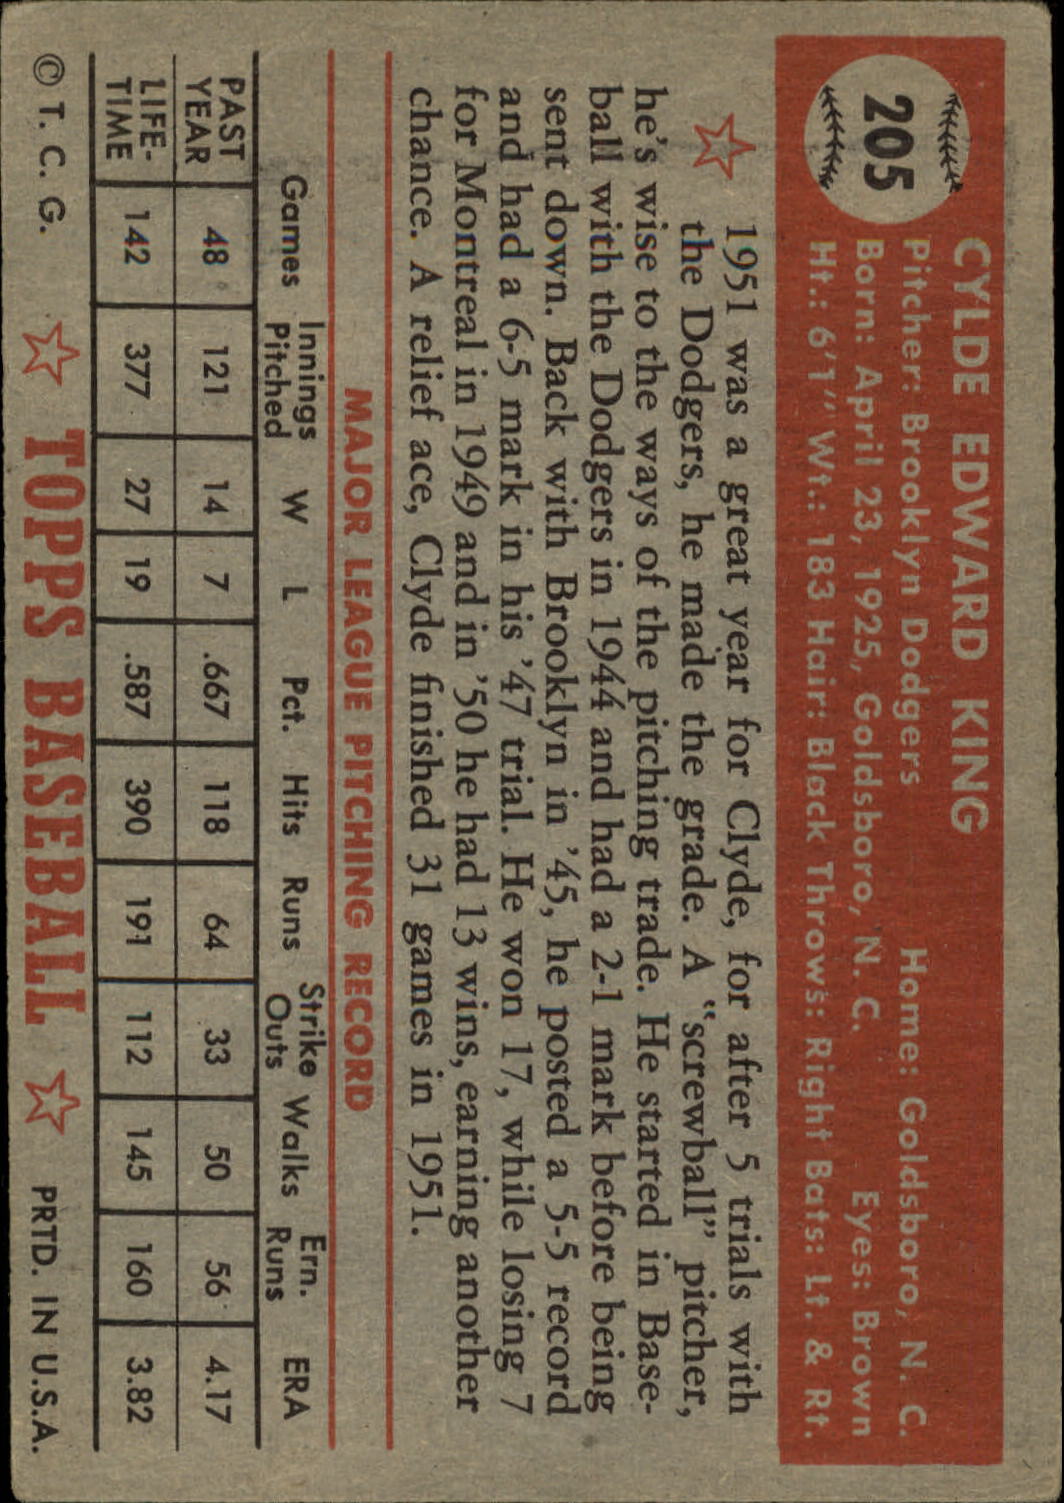 205
CYLDE EDWARD KING
Pitcher: Brooklyn Dodgers Home: Goldsboro, N. C.
Born: April 23, 1925, Goldsboro, N. C. Eyes: Brown
Ht.: 6'1" Wt.: 183 Hair: Black Throws: Right Bats: Lt. & Rt.
1951 was a great year for Clyde, for after 5 trials with
the Dodgers, he made the grade. A "screwball" pitcher,
he's wise to the ways of the pitching trade. He started in Base-
ball with the Dodgers in 1944 and had a 2-1 mark before being
sent down. Back with Brooklyn in '45, he posted a 5-5 record
and had a 6-5 mark in his '47 trial. He won 17, while losing 7
for Montreal in 1949 and in '50 he had 13 wins, earning another
chance. A relief ace, Clyde finished 31 games in 1951.
MAJOR LEAGUE PITCHING RECORD
Games Innings Pitched W L Pct. Hits Runs Strike Outs Walks Ern. Runs ERA
PAST YEAR 48 121 14 7 .667 118 64 33 50 56 4.17
LIFE-TIME 142 377 27 19 .587 390 191 112 145 160 3.82
© T. C. G. TOPPS BASEBALL PRTD. IN U.S.A.